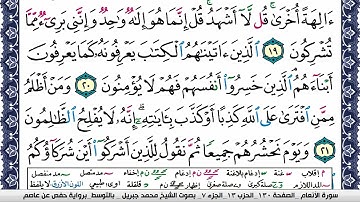 ءَالِهَةً أُخْرَىٰ ۚ قُل لَّآ أَشْهَدُ ۚ قُلْ إِنَّمَا هُوَ إِلَٰهٌ وَٰحِدٌ وَإِنَّنِى بَرِىٓءٌ مِّمَّا
تُشْرِكُونَ ﴿١٩﴾ ٱلَّذِينَ ءَاتَيْنَٰهُمُ ٱلْكِتَٰبَ يَعْرِفُونَهُۥ كَمَا يَعْرِفُونَ
أَبْنَآءَهُمُ ٱلَّذِينَ خَسِرُوٓا۟ أَنفُسَهُمْ فَهُمْ لَا يُؤْمِنُونَ ﴿٢٠﴾ وَمَنْ أَظْلَمُ
مِمَّنِ ٱفْتَرَىٰ عَلَى ٱللَّهِ كَذِبًا أَوْ كَذَّبَ بِـَٔايَٰتِهِۦٓ ۗ إِنَّهُۥ لَا يُفْلِحُ ٱلظَّٰلِمُونَ
﴿٢١﴾ وَيَوْمَ نَحْشُرُهُمْ جَمِيعًا ثُمَّ نَقُولُ لِلَّذِينَ أَشْرَكُوٓا۟ أَيْنَ شُرَكَآؤُكُمُ
سورة الأنعام . الصفحة ١٣٠ الحزب ١٣ الجزء ٧ . بصوت الشيخ محمد جبريل . بالتوسط برواية حفص عن عاصم